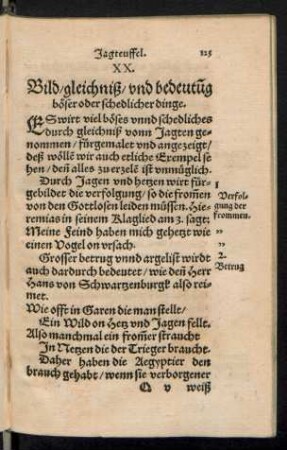 Jagteuffel. 125
XX.
Bild/gleichniß/ vnd bedeutũg
böser oder schedlicher dinge.
ES wirt viel böses vnnd schedliches
durch gleichniß vonn Jagten ge-
nommen / fürgemalet vnd angezeigt/
deß wöllẽ wir auch etliche Exempel se-
hen / deñ alles zu erzelẽ ist vnmüglich.
Durch Jagen vnd hetzen wirt für-
gebildet die verfolgung / so die from̃en
von den Gottlosen leiden müssen. Hie-
remias in seinem Klaglied am 3. sagt:
Meine Feind haben mich gehetzt wie
einen Vogel on vrsach.
1
Verfol-
gung der
frommen.
"
"
Grosser betrug vnnd argelist wirdt
auch dardurch bedeutet / wie deñ Herr
Hans von Schwartzenburgk also rei-
met.
2.
Betrug
Wie offt in Garen die man stellt/
Ein Wild on Hetz vnd Jagen fellt.
Also manchmal ein from̃er straucht
In Netzen die der Trieger braucht.
Daher haben die Aegyptier den
brauch gehabt / wenn sie verborgener
Q v weiß